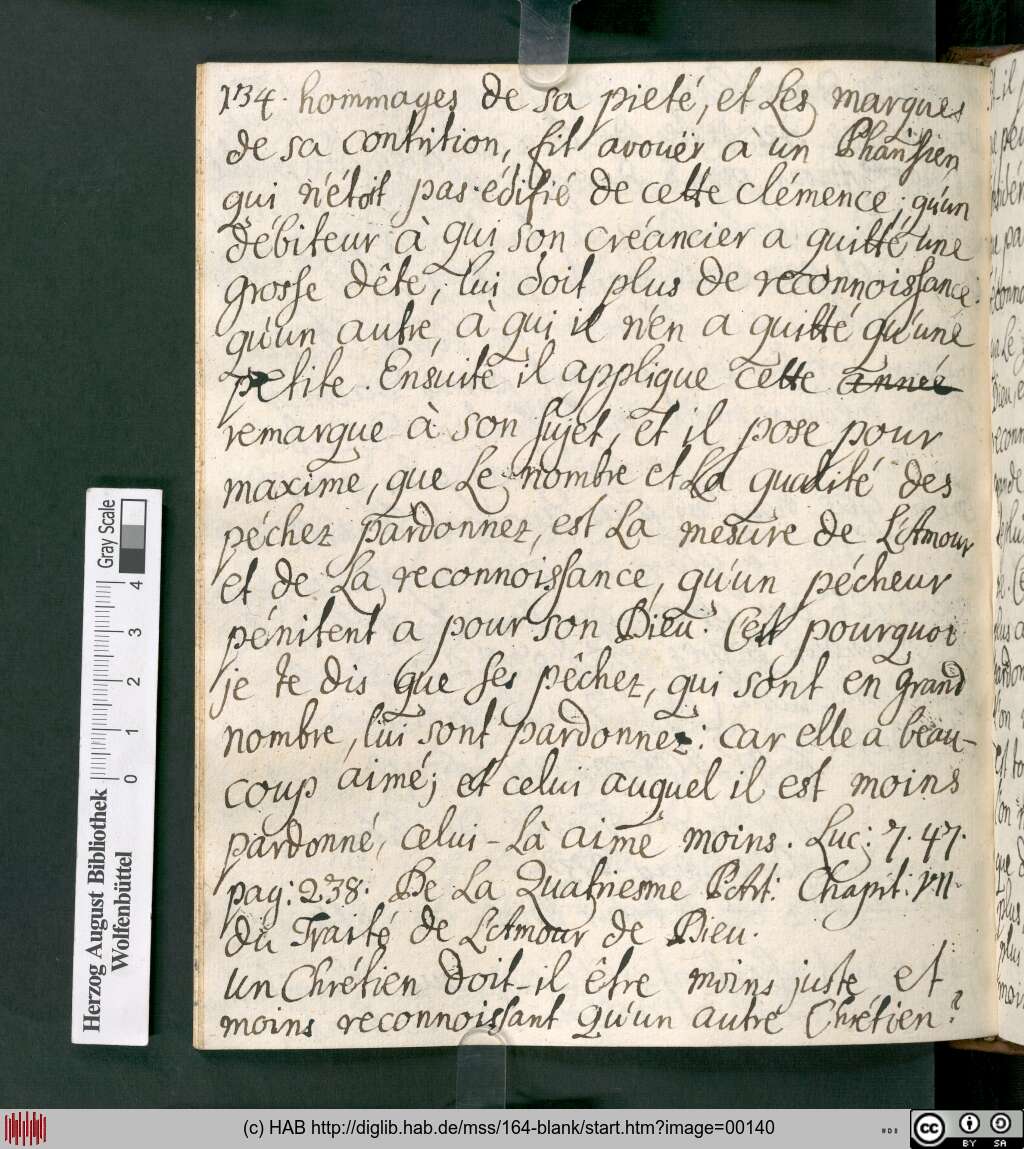 134. hommages de sa pieté, et Les marques
de sa contrition, fit avouër à un Pharisien
qui n'étoit pas édifié de cette clémence; qu'un
débiteur à qui son créancier a quitté une
grosse dête, lui doit plus de reconnoissance
qu'un autre, à qui il n'en a quitté qu'une
petite. Ensuite il applique cette année
remarque à son sujet, et il pose pour
maxime, que Le nombre et La qualité des
péchez pardonnez, est La mesure de L'Amour
et de La reconnoissance, qu'un pécheur
pénitent a pour son Dieu. C'est pourquoi
je te dis que ses pêchez, qui sont en grand
nombre, lui sont pardonnez: car elle a beau-
coup aimé; et celui auquel il est moins
pardonné, celui-Là aime moins. Luc: 7. 47.
pag: 238. De La Quatriesme Part: Chapit: VII.
du Traité de L'Amour de Dieu.
Un Chrétien doit-il être moins juste et
moins reconnoissant qu'un autre Chrétien?
Gray Scale
4
3
2
1
0
Herzog August Bibliothek
Wolfenbüttel
(c) HAB http://diglib.hab.de/mss/164-blank/start.htm?image=00140
cc BY SA